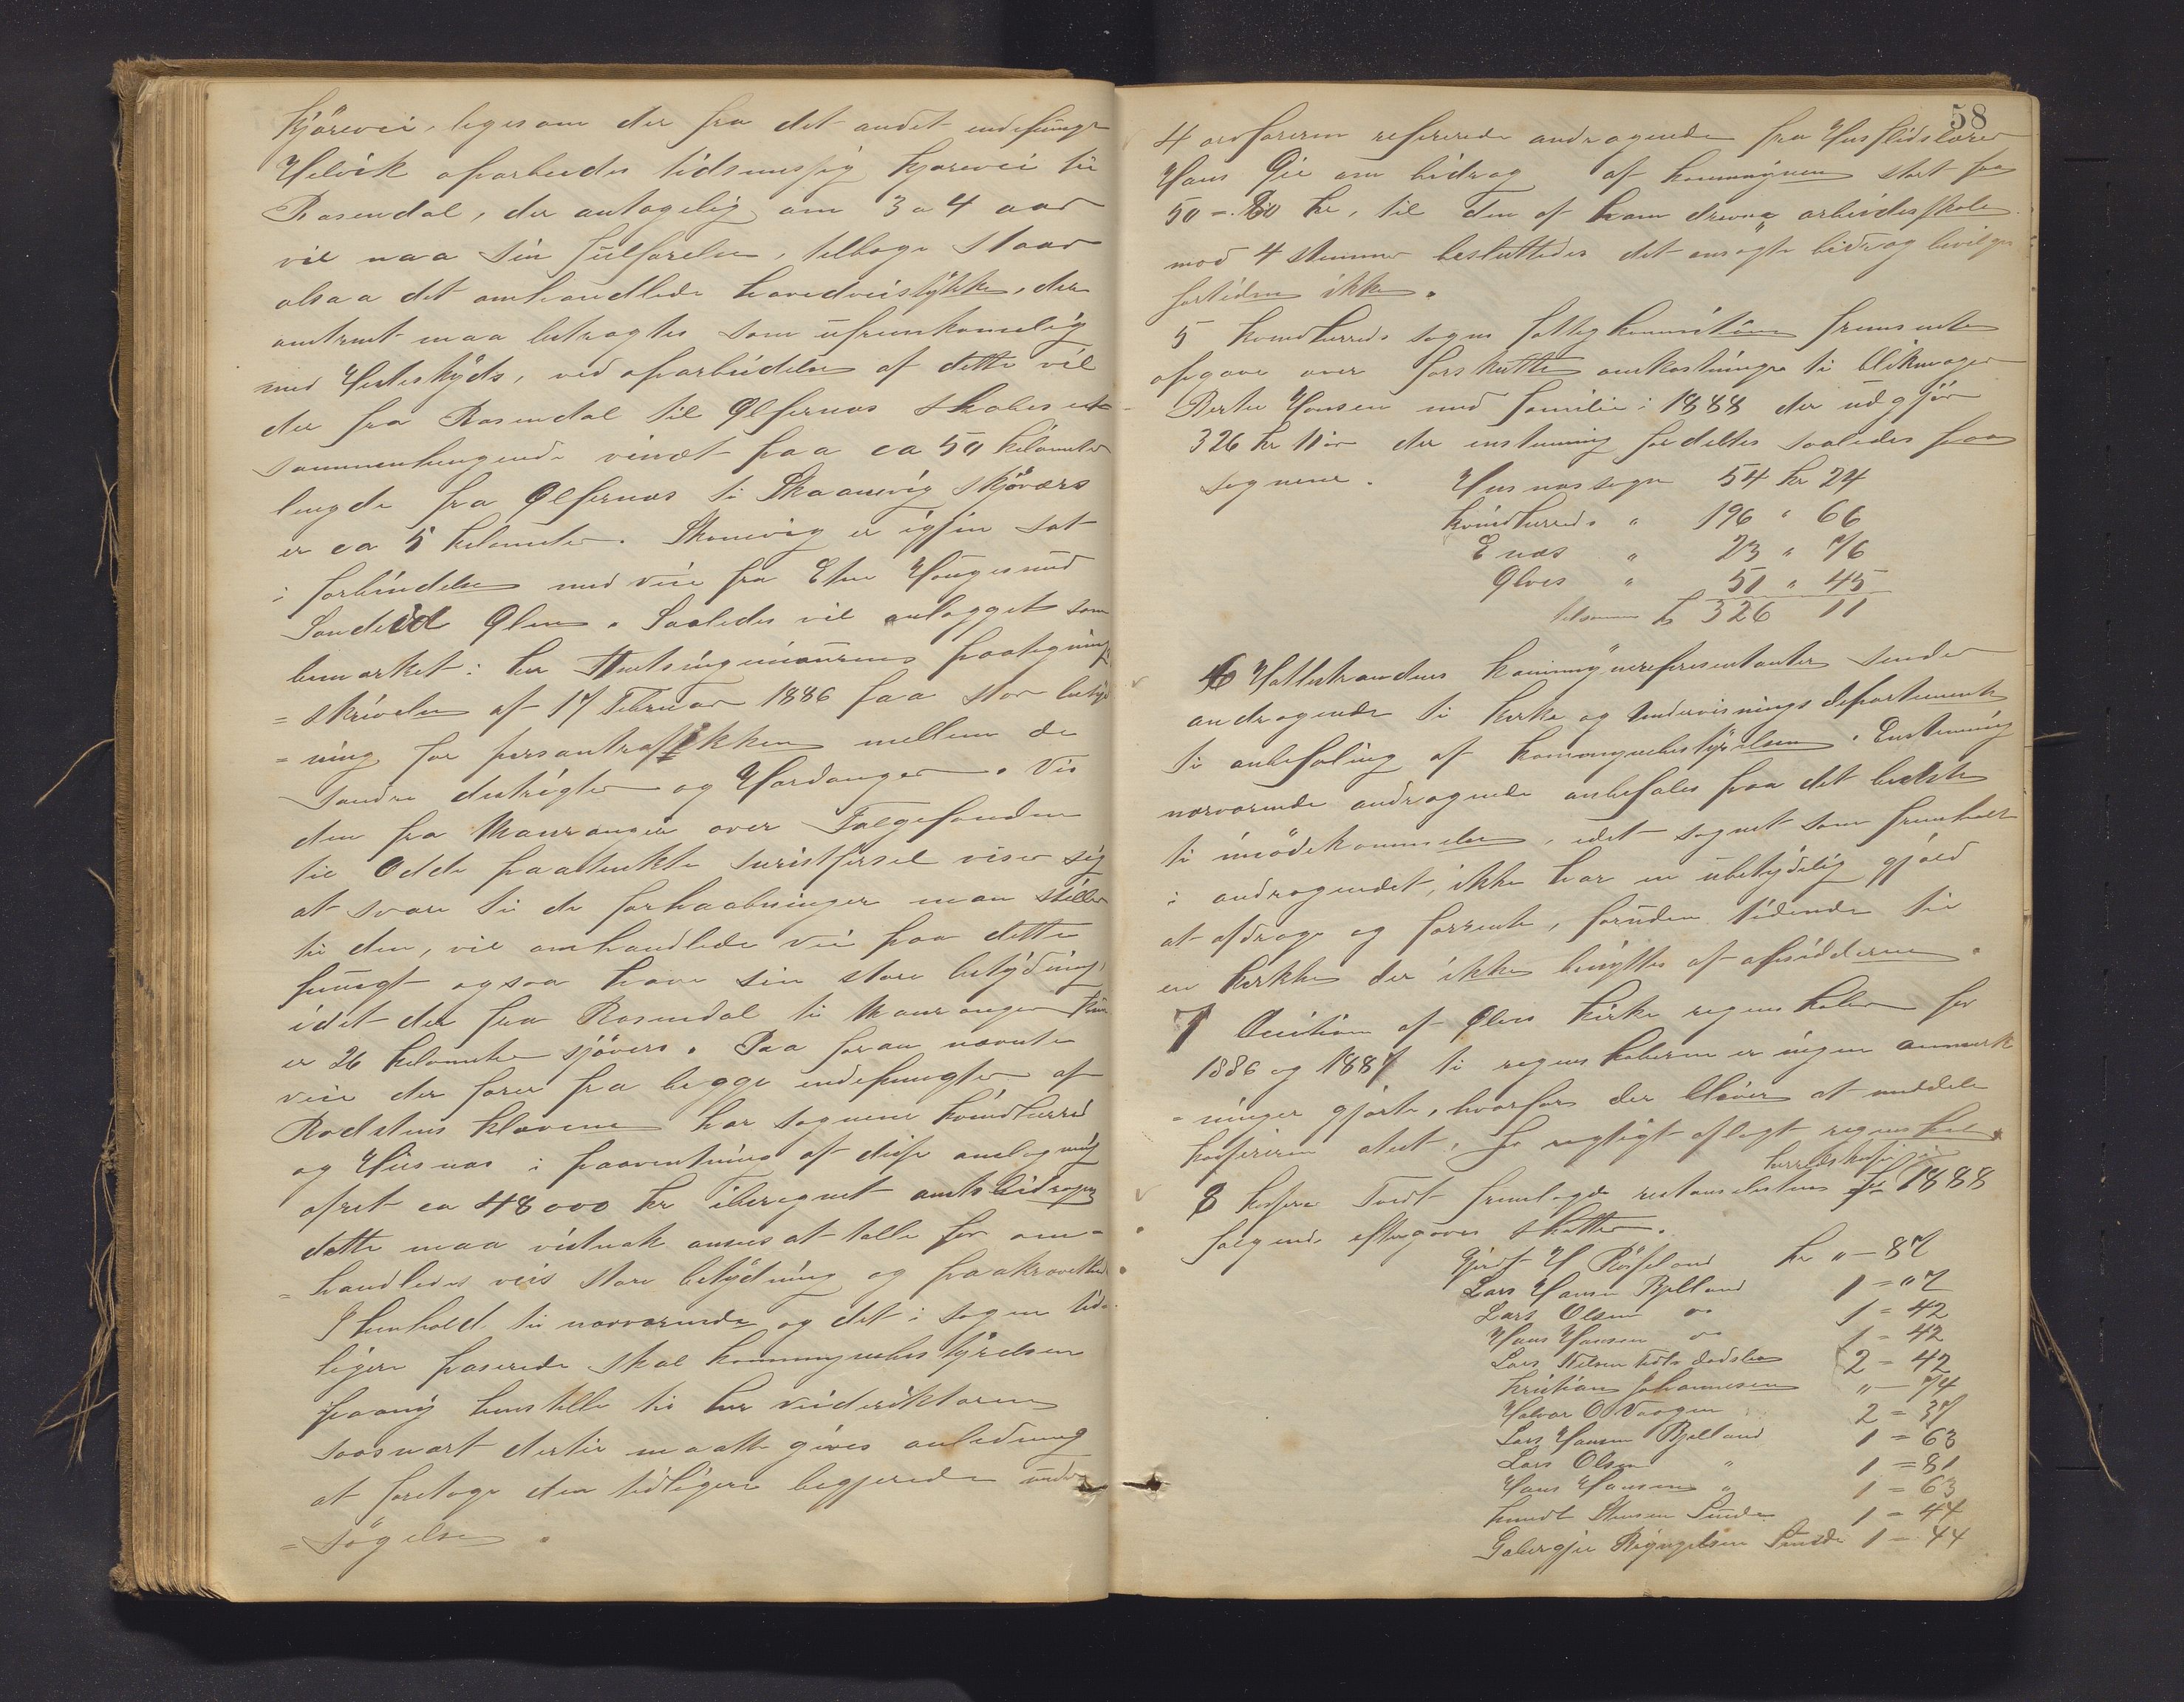 kjörevei, ligesom der fra det andet endepungt
Helvik oparbeides tidsmessig kjorevei til
Rosendal, der antagelig om 3 a 4 aar
vil naa sin fulforelse, tilbage staar
alsaa det omhandlede hovedveistykke, der
omtrent maa betragtes som ufremkomelig
med Hesteskyds, ved oparbeidelse af dette vil
der fra Rosendal til Ølfernes skabes et
sammenhengende veinæt paa ca 50 kilometer
lengde fra Ølfernes til Skaanevig skjöværs
er ca 5 kilometer. Skonevig er igjen sat
i forbindelse med veie fra Etne Haugesund
Sandeid Ølen. Saaledes vil anlægget som
bemærket i her Amtsingeniørens paategnings
= skrivelse af 17 Februar 1886 faa stor betyd
= ning for persontrafikken mellem de
søndre destrigter og Hardanger. Vis
den fra Mauranger over Folgefonden
til Odde paatenkte turistfersel viser sig
at svare til de forhaabninger man stiller
til den, vil omhandlede vei paa dette
pungt ogsaa have sin store betydning,
idet der fra Rosendal til Mauranger kun
er 26 kilometer sjövers. Paa foran nevnte
veie der förer fra begge endepungter af
Rodstens kleivene har sognene kvindherred
og Husnes i paaventning af disse anlægning
ofret ca 48000 kr iberegnet amtsbidragen
dette maa vistnok ansees at talle for om=
= handledes veis store betydning og paakrævethed
I henhold til nærværende og det i sagen tid=
ligere passerede skal kommunebestyrelsen
paany henstille til her veidirektoren
saasnart dertil maatte gives anledning
at foretage den tidligere begjerede under
= sögelse.
58
4 ordforeren refererede andragende fra Husflidslærer
Hans Gie om bidrag af kommunen stort fra
50 - 80 kr, til den af ham drevne arbeidsskole.
mod 4 stemmer besluttedes det ansøgte bidrag bevilges
fortiden ikke.
5 kvindherreds sogns fattigkommision fremsente
opgave over forskutte omkostninger til
Berte Hansen med familie i 1888 der udgjör
326 kr 11 ör der enstemmig fordeltes saaledes paa
sognene. Husnes sogn 54 kr 24
kvindherreds " 196 " 66
Enæs " 23 " 76
Ølves " 51 " 45
tilsammen kr 326 11
6 Hatlestrandens kommunerepresentanter sender
andragende til kirke og undervisnings departementet
til anbefaling af kommunebestyrelsen. Enstemmig
nærværende andragende anbefales paa det bedste
til imödekommelse, idet sognet som fremholt
i andragendet, ikke har en ubetydelig gjæld
at afdrage og forrente, foruden tidende til
en kirke der ikke benyttes af opsidderne.
7 Decition af Ølves kirke regnskaber for
1886 og 1887 til regnskaberne er ingen anmærk
= ninger gjorte, hvorfor der bliver at meddele
kassereren atest, for rigtigt aflagt regnskab.
herredskassen
8 kasserer Tvedt fremlagde restanselisten for 1888
følgende eftergaves skatter.
Gjert H Röiseland kr " - 87
Lars Hansen Bjelland 1 = 07
Lars Olsen do 1 = 42
Hans Hansen do 1 - 42
Lars Nilsen Tofte dödsbo 2 = 42
kristian Johannesen " - 74
Halvor O Vaagen 2 = 37
Lars Hansen Bjelland 1 = 63
Lars Olsen " 1 = 81
Hans Hansen " 1 = 63
knudt Stensen Sunde 1 - 44
Gabergjie Bryngelsen Sunde 1 - 44